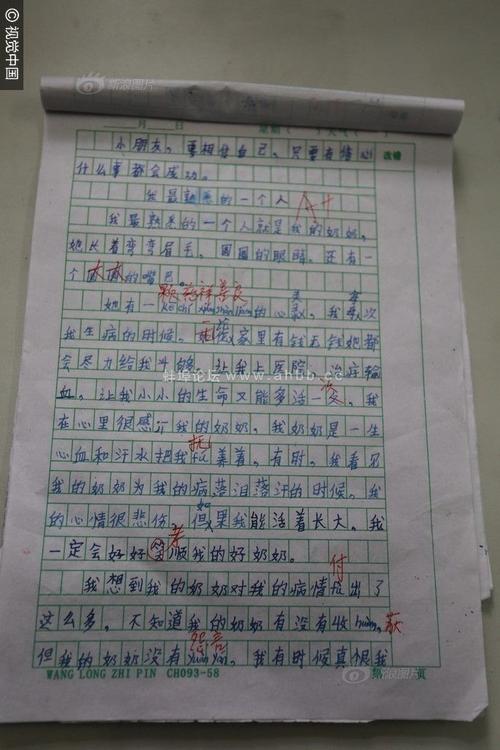 视觉中国
新浪图片
月 日 星期( )天气( )
小朋友,要相信自己,只要有信心 改错
什么事都会成功。
我最熟悉的一个人 A+
我最熟悉的一个人就是我的奶奶,
她长着弯弯眉毛,圆圆的眼睛,还有一
个大大的嘴巴。
颗慈祥善良
她有一 的心 我每次
我生病的时候, 家里有钱无钱她都
会尽力给我 让我上医院,治病输
蚌埠论坛 www.ahbb.cc
血。让我小小的生命又能多活一次。我
在心里很感 我的奶奶。我奶奶是一生
抚
心血和汗水把我 养着。有时,我看见
我的奶奶为我的病落泪落汗的时候,我
如
的心情很悲伤,但果我能活着长大,我
孝
一定会好好 顺我的好奶奶。
付
我想到我的奶奶对我的病情 出了
这么多,不知道我的奶奶有没有收huò, 获
怨言
但我的奶奶没有yuàn yán。我有时候真恨我
WANG LONG ZHI PIN CH093-58 第 页
新浪图片